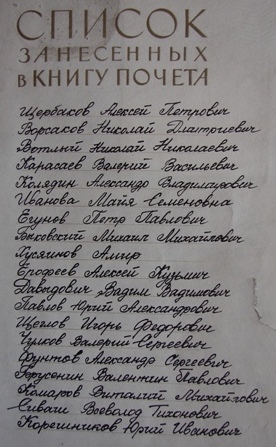 СПИСОК
ЗАНЕСЕННЫХ
В КНИГУ ПОЧЕТА
Щербаков Алексей Петрович
Ворсаков Николай Дмитриевич
Вотяный Николай Николаевич
Карасаев Валерий Васильевич
Колядин Александр Владимирович
Иванова Майя Семеновна
Егунов Петр Павлович
Быковский Михаил Михайлович
Хусяинов Алияр
Ерофеев Алексей Кузьмич
Давыдович Вадим Вадимович
Павлов Юрий Александрович
Щеглов Игорь Федорович
Чулков Валерий Сергеевич
Фунтов Александр Сергеевич
Валентин Павлович
Комаров Виталий Михайлович
Сиваш Всеволод Тихонович
Корешников Юрий Иванович